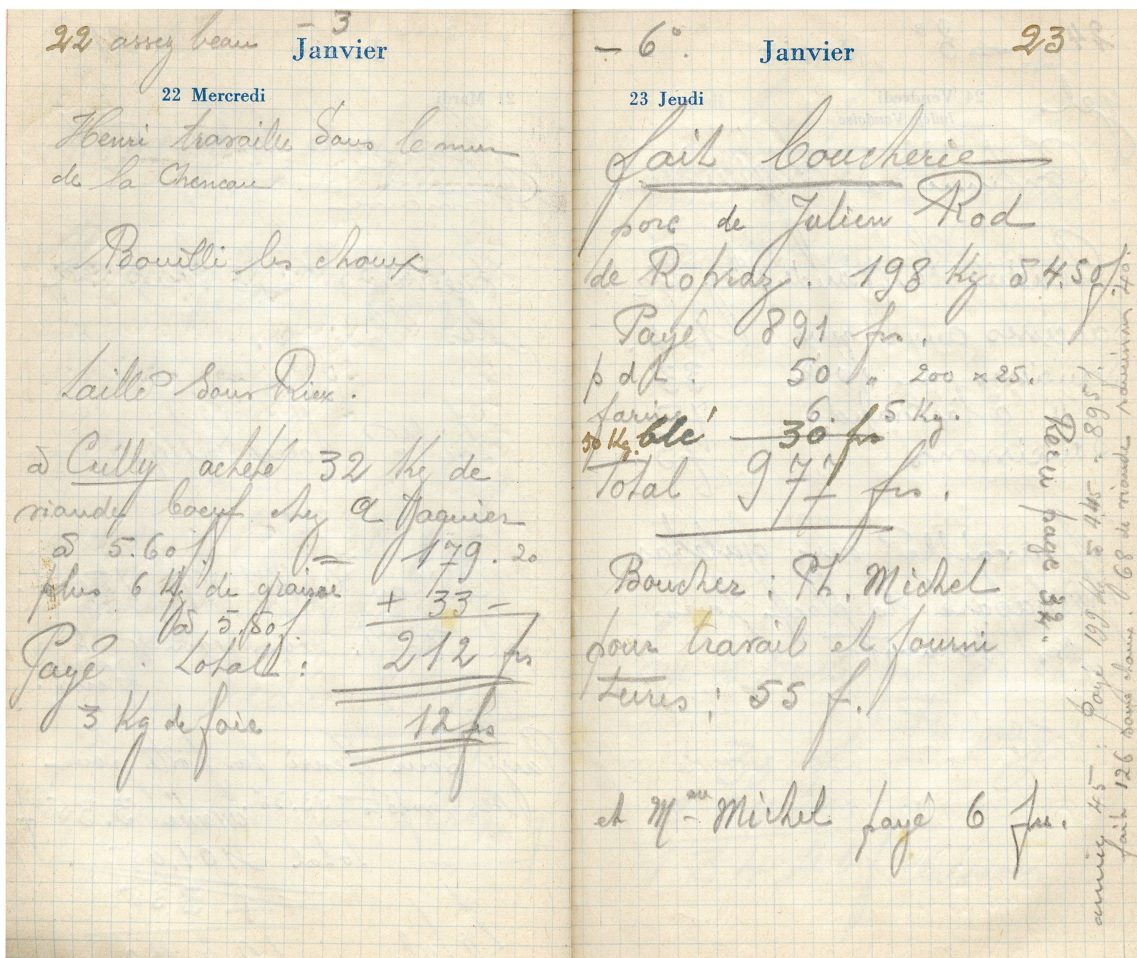 22 assez beau - 3
Janvier
22 Mercredi
Henri travaille dans le mur
de la Cheneau
Bouilli les choux
taillé sous Riex.
à Cully acheté 32 Kg de
viande boeuf chez A Jaquier
à 5.60 f. = 179.20
plus 6 Kg de graisse + 33 -
à 5.50 f.
Payé. total : 212 frs
3 Kg de foie 12 frs
- 6°. 23
Janvier
23 Jeudi
fait boucherie
porc de Julien Rod
de Ropraz. 198 Kg à 4.50 f
Payé 891 frs.
p d t. 50 " 200 x 25.
farine 6. 5 Kg.
50 Kg. blé 30 frs
Total 977 frs.
Boucher : Ph. Michel
pour travail et fourni
tures : 55 f.
et Mme Michel payé 6 frs.
Recu page 32.
année 45 : Payé 199 kg à 445 = 895 f.
fait 126 saucissons. 68 de viande 40.